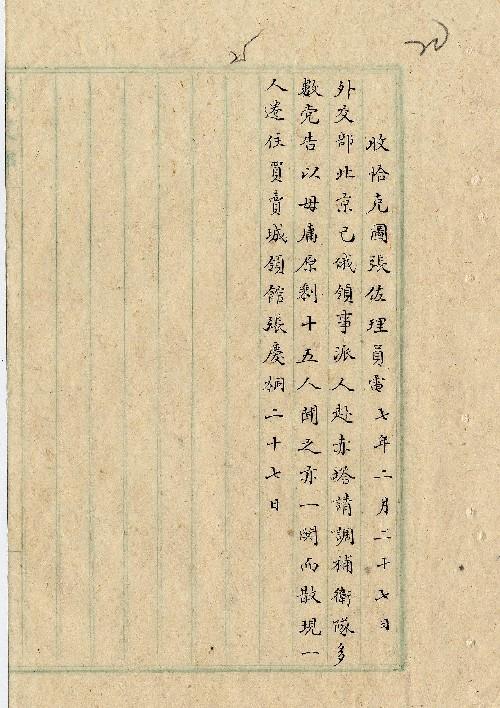 25
收恰克圖張佐理員電七年二月二十七日
外交部北京已俄領事派人赴赤塔請調補衛隊多
數党告以毋庸原剩十五人聞之亦一鬨而散現一
人逃住買賣城領館張慶桐二十七日